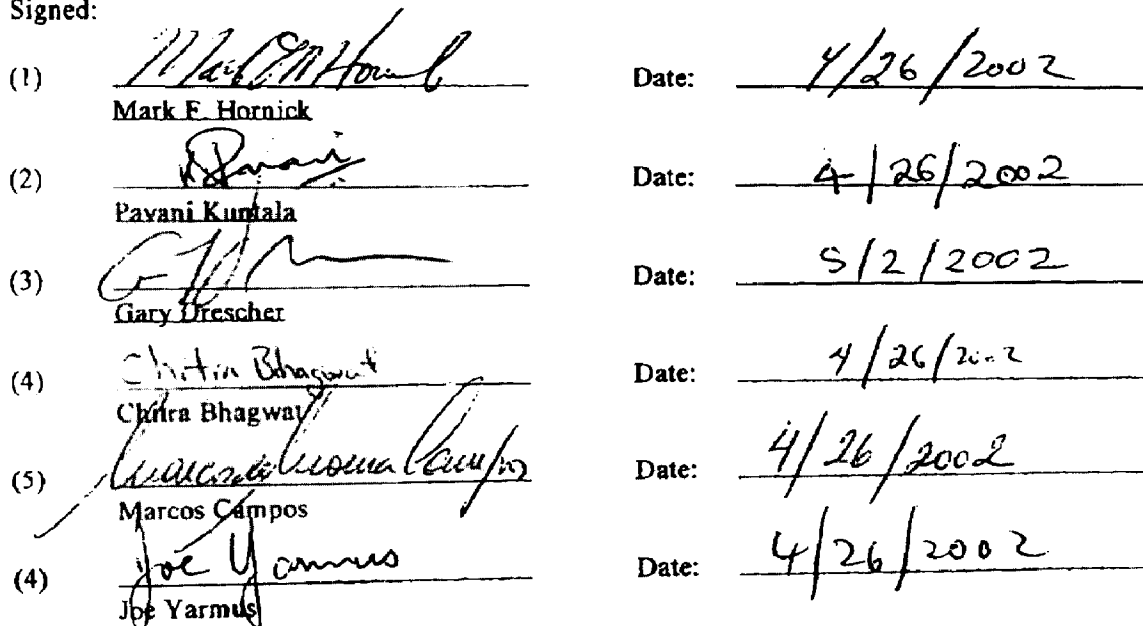 Signed:
(1) Mark E M Hornick Date: 4/26/2002
Mark E. Hornick
(2) Pavani Date: 4/26/2002
Pavani Kuntala
(3) Date: 5/2/2002
Gary Drescher
(4) Chitra Bhagwat Date: 4/26/2002
Chitra Bhagwat
(5) Campos Date: 4/26/2002
Marcos Campos
(4) Joe Yarmus Date: 4/26/2002
Joe Yarmus